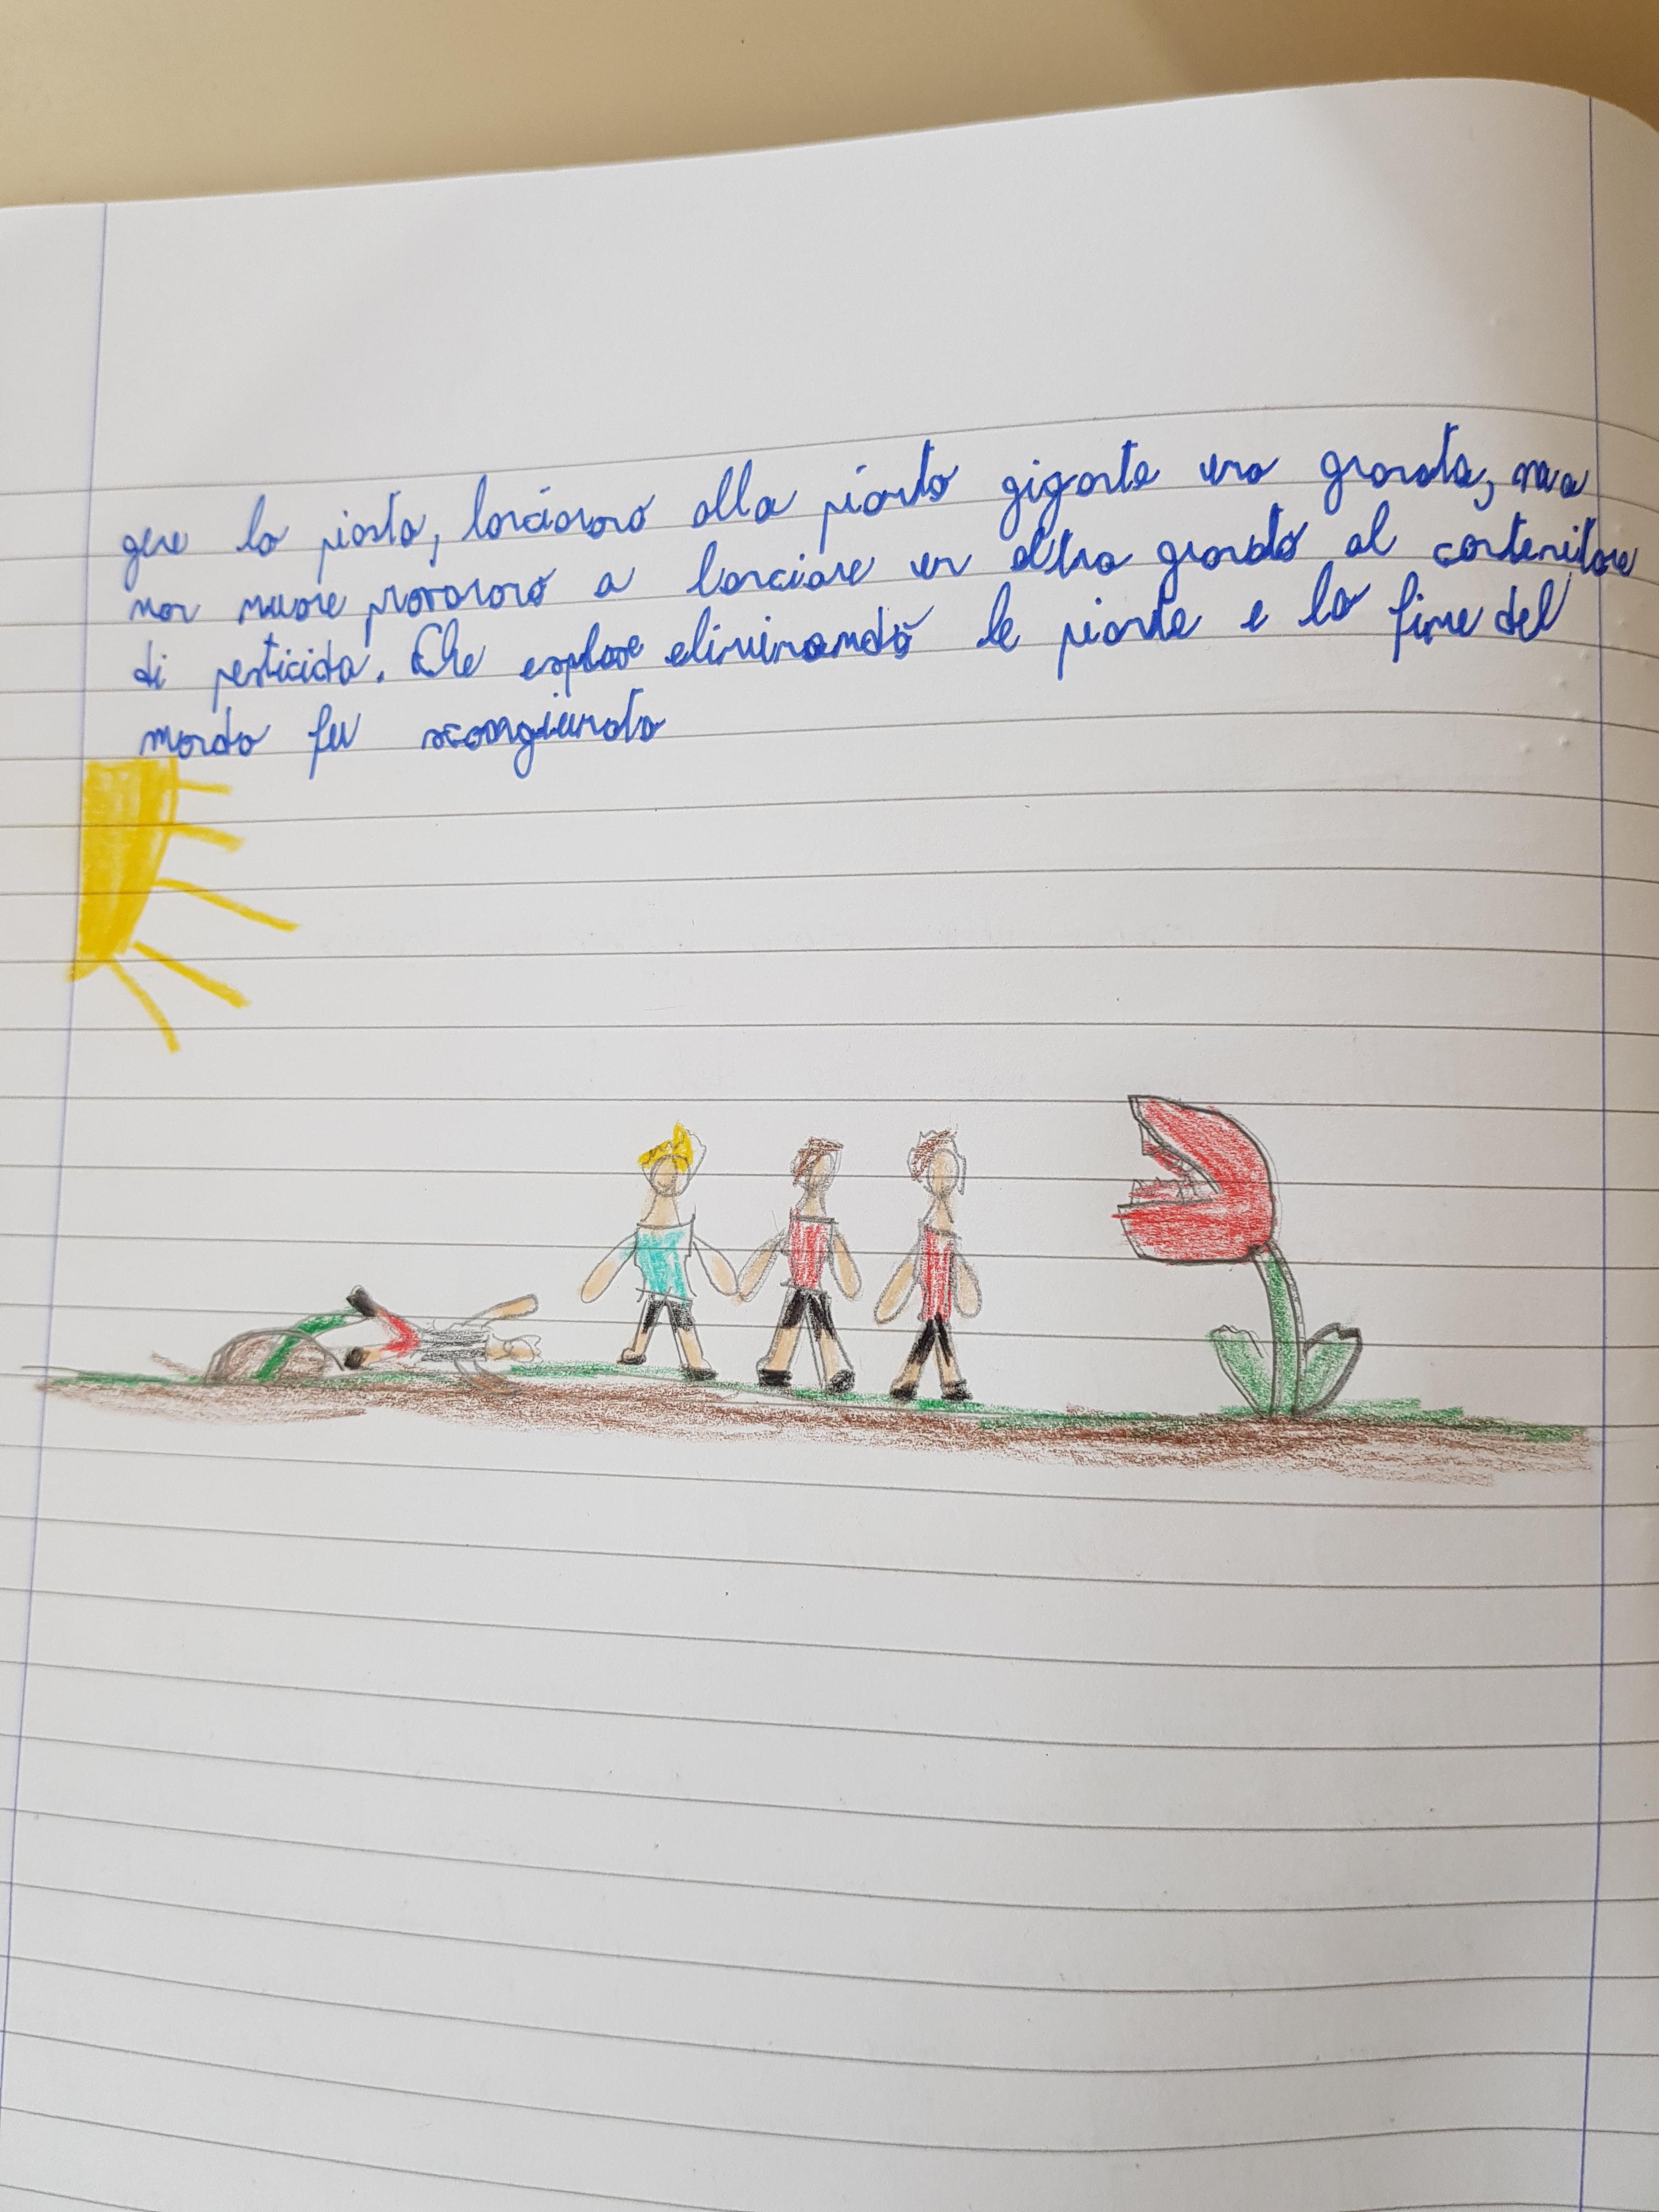 gere la pianta, lanciarono alla pianta gigante una granata, ma
non muore provarono a lanciare un altra granata al contenitore
di pesticida. Che esplose eliminando le piante e la fine del
mondo fu scongiurata